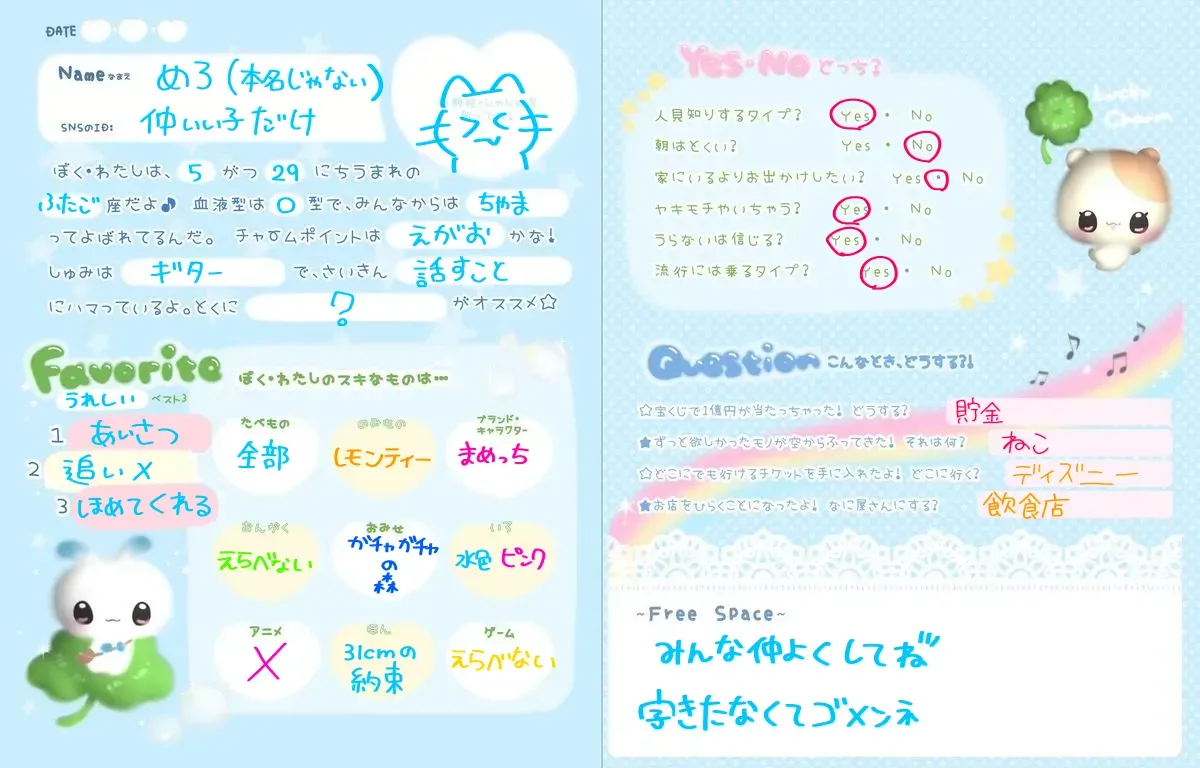 DATE
Name なまえ めろ (本名じゃない)
SNSのID: 仲いい子だけ
ぼく・わたしは、 5 がつ 29 にちうまれの
ふたご 座だよ♪ 血液型は O 型で、みんなからは ちゃま
ってよばれてるんだ。 チャームポイントは えがお かな!
しゅみは ギター で、さいきん 話すこと
にハマっているよ。とくに ? がオススメ☆
Favorite ぼく・わたしのスキなものは…
うれしい ベスト3
1 あいさつ
2 追いメ
3 ほめてくれる
たべもの
全部
のみもの
レモンティー
ブランド・キャラクター
まめっち
おんがく
えらべない
おみせ
ガチャガチャ
の
森
いろ
水色 ピンク
アニメ
X
ほん
31cmの
約束
ゲーム
えらべない
Yes・No どっち?
人見知りするタイプ? Yes ・ No
朝はとくい? Yes ・ No
家にいるよりお出かけしたい? Yes ・ No
ヤキモチやいちゃう? Yes ・ No
うらないは信じる? Yes ・ No
流行には乗るタイプ? Yes ・ No
Lucky
Charm
Question こんなとき、どうする?!
☆宝くじで1億円が当たっちゃった! どうする? 貯金
★ずっと欲しかったモノが空からふってきた! それは何? ねこ
☆どこにでも行けるチケットを手に入れたよ! どこに行く? ディズニー
★お店をひらくことになったよ! なに屋さんにする? 飲食店
~Free Space~
みんな仲よくしてね
字きたなくてゴメンネ